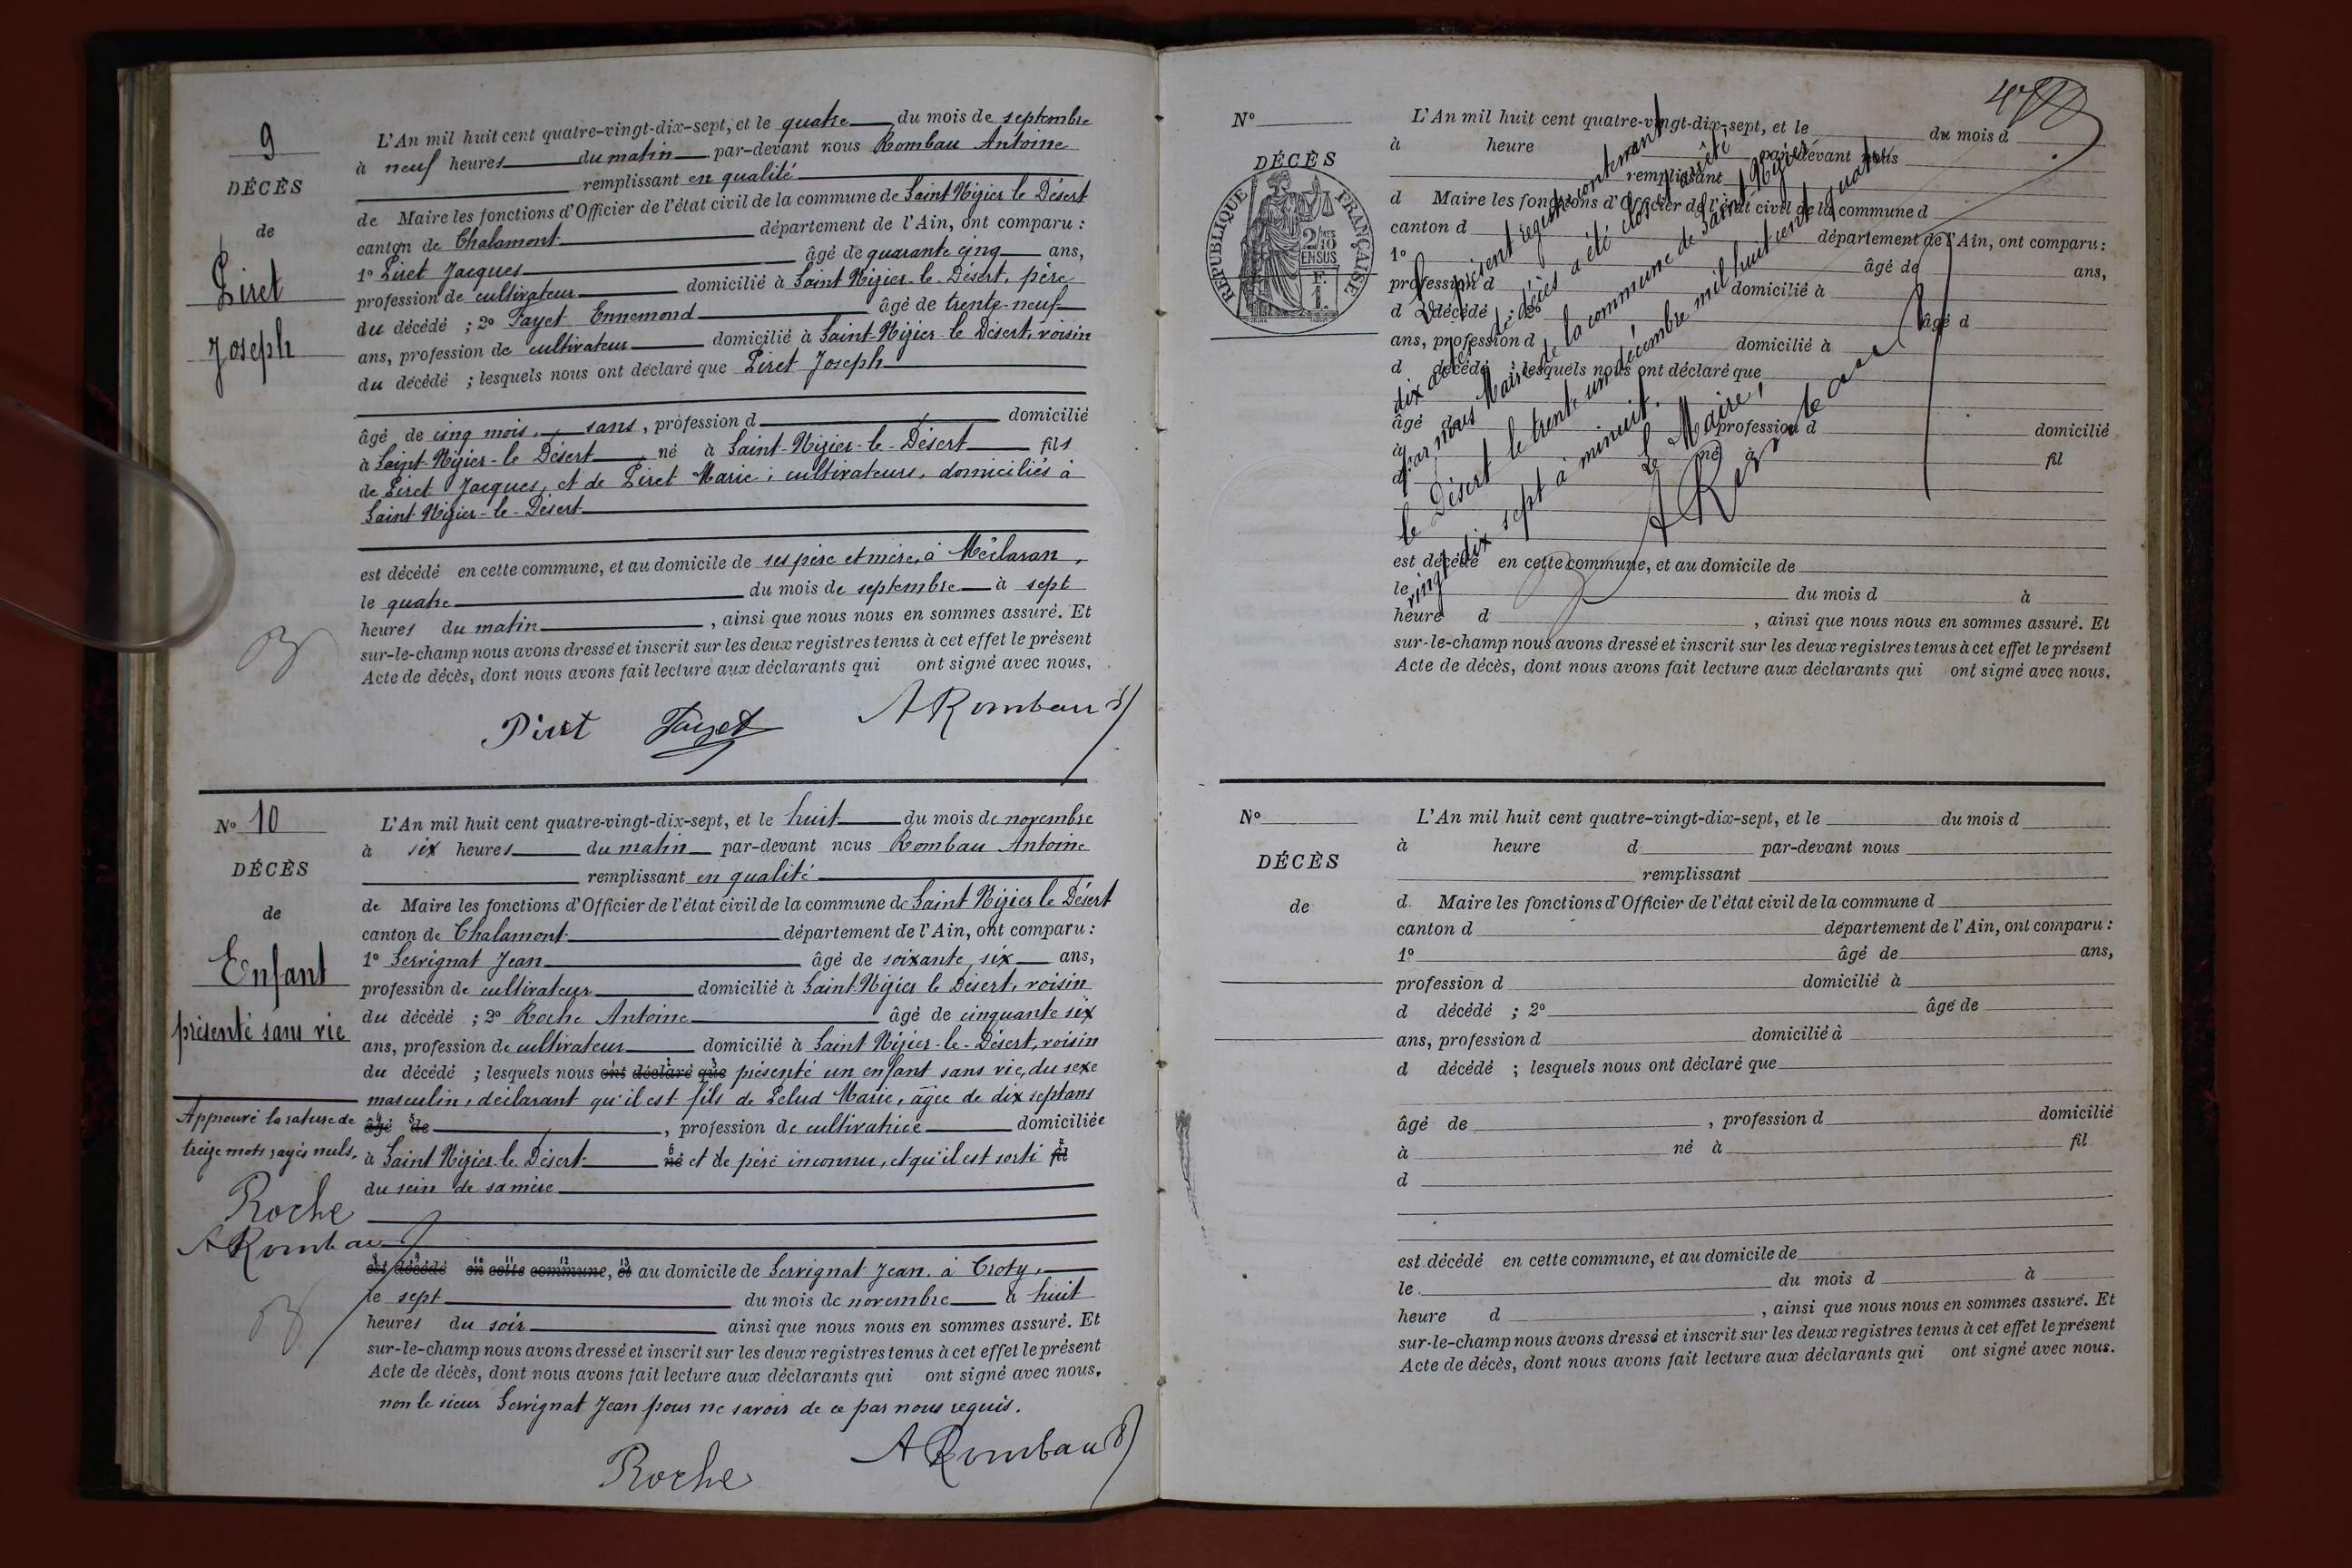 9
DÉCÈS
de
Piret
Joseph
L'An mil huit cent quatre-vingt-dix-sept, et le quatre du mois de septembre
à neuf heures du matin par-devant nous Rombau Antoine
remplissant en qualité
de Maire les fonctions d'Officier de l'état civil de la commune de Saint Nizier le Désert
canton de Chalamont département de l'Ain, ont comparu :
1º Piret Jacques âgé de quarante cinq ans,
profession de cultivateur domicilié à Saint-Nizier-le-Désert, père
du décédé ; 2º Fayet Ennemond âgé de trente-neuf
ans, profession de cultivateur domicilié à Saint-Nizier-le Désert, voisin
du décédé ; lesquels nous ont déclaré que Piret Joseph
âgé de cinq mois, sans, profession d domicilié
à Saint-Nizier-le Désert né à Saint-Nizier-le-Désert fils
de Piret Jacques, et de Piret Marie ; cultivateurs, domiciliés à
Saint-Nizier-le-Désert
est décédé en cette commune, et au domicile de ses père et mère, à
le quatre du mois de septembre à sept
heures du matin , ainsi que nous nous en sommes assuré. Et
sur-le-champ nous avons dressé et inscrit sur les deux registres tenus à cet effet le présent
Acte de décès, dont nous avons fait lecture aux déclarants qui ont signé avec nous,
Piret Fayet A Rombau
Nº 10
DÉCÈS
de
Enfant
présenté sans vie
Approuvé la rature de
treize mots rayés nuls.
Roche
A Rombau
L'An mil huit cent quatre-vingt-dix-sept, et le huit du mois de novembre
à six heures du matin par-devant nous Rombau Antoine
remplissant en qualité
de Maire les fonctions d'Officier de l'état civil de la commune de Saint Nizier le Désert
canton de Chalamont département de l'Ain, ont comparu :
1º Servignat Jean âgé de soixante six ans,
profession de cultivateur domicilié à Saint-Nizier le Désert, voisin
du décédé ; 2º Roche Antoine âgé de cinquante six
ans, profession de cultivateur domicilié à Saint Nizier-le-Désert, voisin
du décédé ; lesquels nous ont déclaré que présenté un enfant sans vie, du sexe
masculin, déclarant qu'il est fils de Pelud Marie, âgée de dix sept ans
âgé de , profession de cultivatrice domiciliée
à Saint Nizier le Désert né et de père inconnu, et qu'il est sorti fil
du sein de sa mère
est décédé en cette commune, et au domicile de Servignat Jean, à Croty,
le sept du mois de novembre à huit
heures du soir ainsi que nous nous en sommes assuré. Et
sur-le-champ nous avons dressé et inscrit sur les deux registres tenus à cet effet le présent
Acte de décès, dont nous avons fait lecture aux déclarants qui ont signé avec nous,
non le sieur Servignat Jean pour ne savoir de ce par nous requis.
Roche A Rombau
Nº
DÉCÈS
RÉPUBLIQUE FRANÇAISE
2/10
EN SUS
F.
1.
L'An mil huit cent quatre-vingt-dix-sept, et le du mois d
à heure par-devant nous
remplissant
d Maire les fonctions d'Officier de l'état civil de la commune d
canton d département de l'Ain, ont comparu :
1º âgé de ans,
profession d domicilié à
d décédé ; 2º âgé d
ans, profession d domicilié à
d décédé ; lesquels nous ont déclaré que
âgé de profession d domicilié
à né à fil
d
est décédé en cette commune, et au domicile de
le du mois d à
heure d , ainsi que nous nous en sommes assuré. Et
sur-le-champ nous avons dressé et inscrit sur les deux registres tenus à cet effet le présent
Acte de décès, dont nous avons fait lecture aux déclarants qui ont signé avec nous.
Le présent registre contenant
dix actes de décès a été clos et arrêté
par nous Maire de la commune de Saint Nizier
le Désert le trente un décembre mil huit cent quatre
vingt dix sept à minuit.
Le Maire,
A Rombau
Nº
DÉCÈS
de
L'An mil huit cent quatre-vingt-dix-sept, et le du mois d
à heure d par-devant nous
remplissant
d Maire les fonctions d'Officier de l'état civil de la commune d
canton d département de l'Ain, ont comparu :
1º âgé de ans,
profession d domicilié à
d décédé ; 2º âgé de
ans, profession d domicilié à
d décédé ; lesquels nous ont déclaré que
âgé de , profession d domicilié
à né à fil
d
est décédé en cette commune, et au domicile de
le du mois d à
heure d , ainsi que nous nous en sommes assuré. Et
sur-le-champ nous avons dressé et inscrit sur les deux registres tenus à cet effet le présent
Acte de décès, dont nous avons fait lecture aux déclarants qui ont signé avec nous.